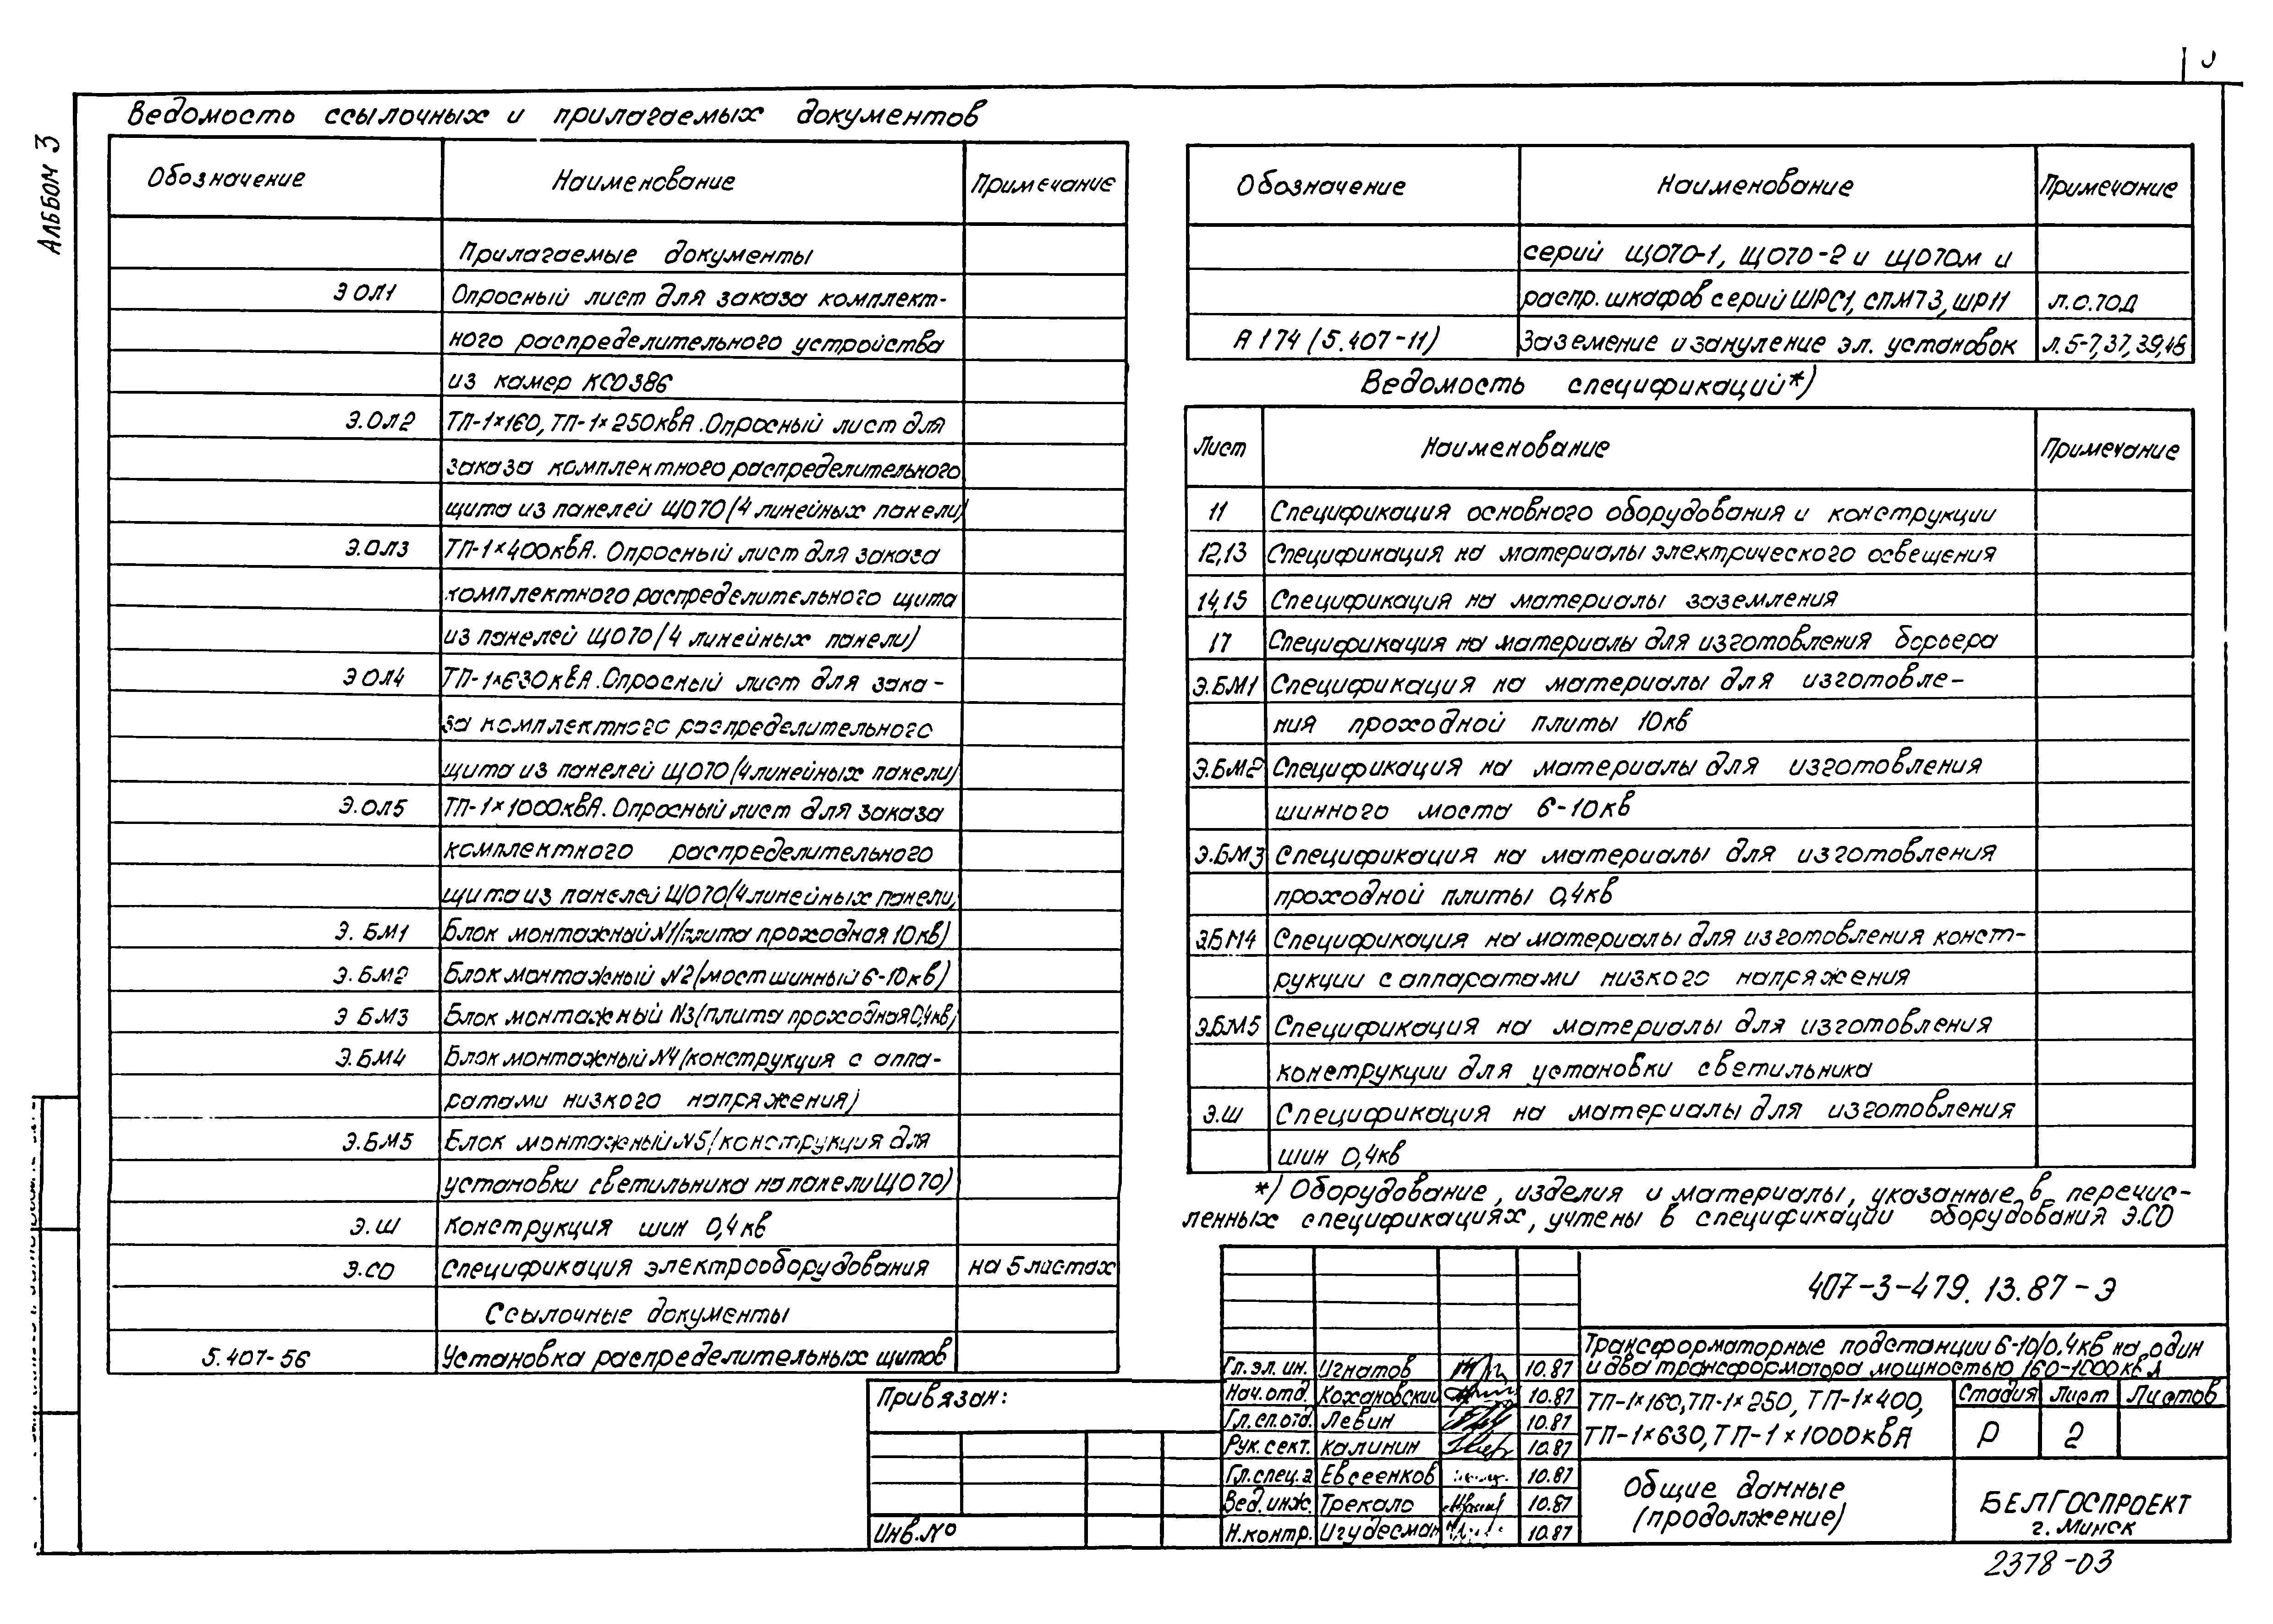 АЛЬБОМ 3
Ведомость ссылочных и прилагаемых документов
Обозначение Наименование Примечание
Прилагаемые документы
Э ОЛ1 Опросный лист для заказа комплект-
ного распределительного устройства
из камер КСО386
Э.ОЛ2 ТП-1×160, ТП-1×250кВА. Опросный лист для
заказа комплектного распределительного
щита из панелей ЩО70 (4 линейных панели)
Э.ОЛ3 ТП-1×400кВА. Опросный лист для заказа
комплектного распределительного щита
из панелей ЩО70 (4 линейных панели)
Э ОЛ4 ТП-1×630кВА. Опросный лист для зака-
за комплектного распределительного
щита из панелей ЩО70 (4 линейных панели)
Э.ОЛ5 ТП-1×1000кВА. Опросный лист для заказа
комплектного распределительного
щита из панелей ЩО70 (4 линейных панели)
Э. БМ1 Блок монтажный N1 (плита проходная 10кв)
Э. БМ2 Блок монтажный N2 (мост шинный 6-10кв)
Э БМ3 Блок монтажный N3 (плита проходная 0,4кв)
Э.БМ4 Блок монтажный N4 (конструкция с аппа-
ратами низкого напряжения)
Э.БМ5 Блок монтажный N5 (конструкция для
установки светильника на панели ЩО70)
Э.Ш Конструкция шин 0,4кв
Э.СО Спецификация электрооборудования на 5 листах
Ссылочные документы
5.407-56 Установка распределительных щитов
Обозначение Наименование Примечание
серий ЩО70-1, ЩО70-2 и ЩО70м и
распр. шкафов серий ШРС1, СПМ73, ШР11 л.о.тод
А174 (5.407-11) Заземение и зануление эл. установок л.5-7,37,39,46
Ведомость спецификаций*)
Лист Наименование Примечание
11 Спецификация основного оборудования и конструкции
12,13 Спецификация на материалы электрического освещения
14,15 Спецификация на материалы заземления
17 Спецификация на материалы для изготовления барьера
Э.БМ1 Спецификация на материалы для изготовле-
ния проходной плиты 10кв
Э.БМ2 Спецификация на материалы для изготовления
шинного моста 6-10кв
Э.БМ3 Спецификация на материалы для изготовления
проходной плиты 0,4кв
Э.БМ4 Спецификация на материалы для изготовления конст-
рукции с аппаратами низкого напряжения
Э.БМ5 Спецификация на материалы для изготовления
конструкции для установки светильника
Э.Ш Спецификация на материалы для изготовления
шин 0,4кв
*) Оборудование, изделия и материалы, указанные в перечис-
ленных спецификациях, учтены в спецификации оборудования Э.СО
407-3-479.13.87-Э
Трансформаторные подстанции 6-10/0,4кв на один
и два трансформатора мощностью 160-1000кВА
Гл. эл. ин. Игнатов 10.87
Нач. отд. Кохановский 10.87
Гл. сп. отд. Левин 10.87
Рук. сект. Калинин 10.87
Гл. спец. Евсеенков 10.87
Вед. инж. Трекало 10.87
Н. контр. Игудесман 10.87
ТП-1×160, ТП-1×250, ТП-1×400,
ТП-1×630, ТП-1×1000кВА
Стадия Лист Листов
Р 2
Общие данные
(продолжение)
БЕЛГОСПРОЕКТ
г. Минск
Привязан:
Инв. №
2378-03